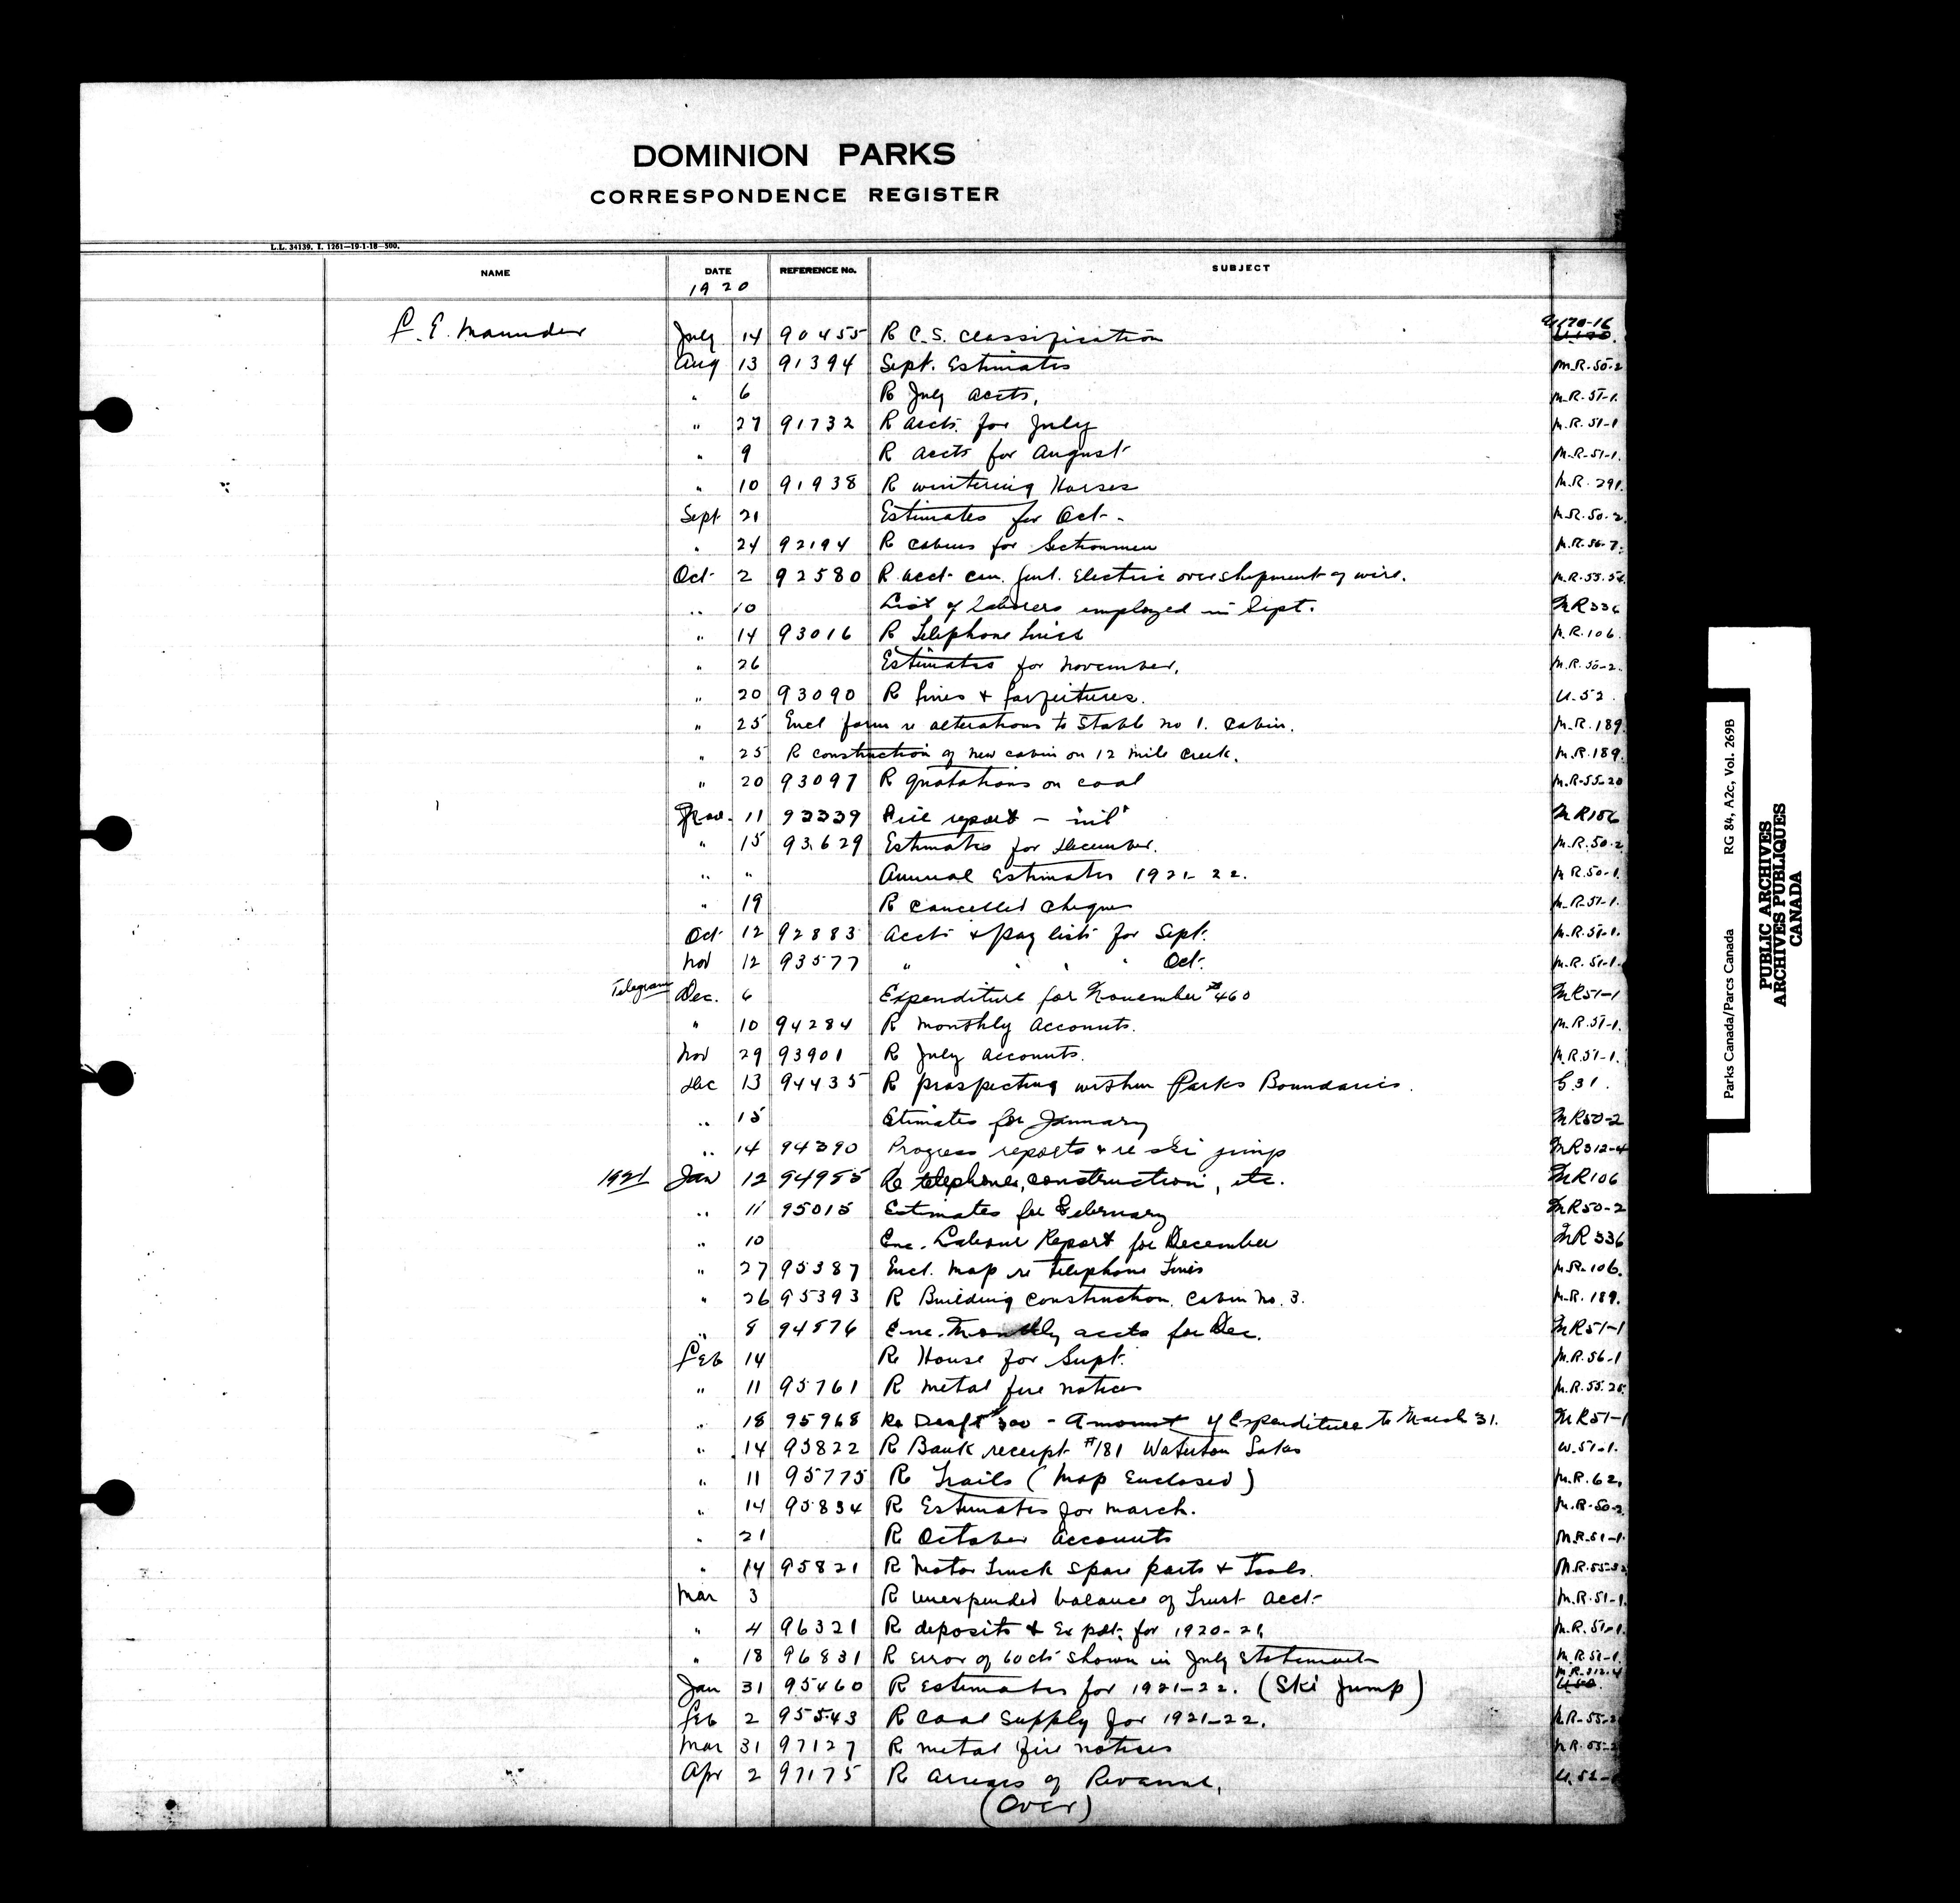 DOMINION PARKS
CORRESPONDENCE REGISTER
L.L. 34139. I. 1261—19-1-18—500.
NAME DATE REFERENCE No. SUBJECT
1920
F. E. Maunder July 14 90455 R C.S. Classification U170-16
Aug 13 91394 Sept. Estimates M.R.50-2
" 6 R July accts. M.R.51-1.
" 27 91732 R accts. for July M.R.51-1
" 9 R accts for August M.R.51-1.
" 10 91938 R wintering Horses M.R.291.
Sept 21 Estimates for Oct. M.R.50-2.
" 24 92194 R cabins for Sectionmen M.R.56-7.
Oct 2 92580 R. acct. Can. Genl. Electric over shipment of wire. M.R.55.
" 10 List of laborers employed in Sept. MR336
" 14 93016 R Telephone lines M.R.106.
" 26 Estimates for November. M.R.50-2.
" 20 93090 R fines & forfeitures. U.52.
" 25 Encl form re alterations to Stable no 1. Cabin. M.R.189.
" 25 R construction of new cabin on 12 mile creek. M.R.189.
" 20 93097 R quotations on coal M.R-55-20
Nov. 11 93339 Fire report - "nil" MR156
" 15 93629 Estimates for December. M.R.50-2
" " Annual Estimates 1921-22. M.R.50-1.
" 19 R cancelled cheques M.R.51-1.
Oct 12 92883 Accts & pay lists for Sept. M.R.51-1.
Nov 12 93577 " " " " Oct. M.R.51-1.
Telegram Dec. 6 Expenditure for November $460 MR51-1
" 10 94284 R monthly Accounts. M.R.51-1.
Nov 29 93901 R July accounts. M.R.51-1.
Dec 13 94435 R prospecting within Parks Boundaries. G.31.
" 15 Estimates for January MR50-2
" 14 94390 Progress reports & re ski jump MR312-4
1921 Jan 12 94955 Re telephones, construction, etc. MR106
" 11 95015 Estimates for February MR50-2
" 10 Enc. Labour Report for December MR336
" 27 95387 Encl. Map re telephone lines M.R.106.
" 26 95393 R Building construction. Cabin No. 3. M.R.189.
" 8 94876 Enc. Monthly accts for Dec. MR51-1
Feb 14 R House for Supt. M.R.56-1
" 11 95761 R metal fire notices M.R.55.25.
" 18 95968 Re Draft $300 - Amount of Expenditure to March 31. MR51-1
" 14 95822 R Bank receipt #181 Waterton Lakes W.51-1.
" 11 95775 R Trails (Map Enclosed) M.R.62.
" 14 95834 R Estimates for March. M.R.50-2
" 21 R October Accounts M.R.51-1.
" 14 95821 R Motor Truck spare parts & Tools.
Mar 3 R unexpended balance of Trust acct. M.R.51-1.
" 4 96321 R deposits & Expdt. for 1920-21. M.R.51-1.
" 18 96831 R Error of 60cts shown in July Statement M.R.51-1.
Jan 31 95460 R Estimates for 1921-22. (Ski Jump) M.R.312-4
Feb 2 95543 R Coal Supply for 1921-22. M.R-55-2
Mar 31 97127 R metal fire notices
Apr 2 97175 R arrears of Revenue.
(Over)
Parks Canada/Parcs Canada RG 84, A2c, Vol. 269B
PUBLIC ARCHIVES
ARCHIVES PUBLIQUES
CANADA